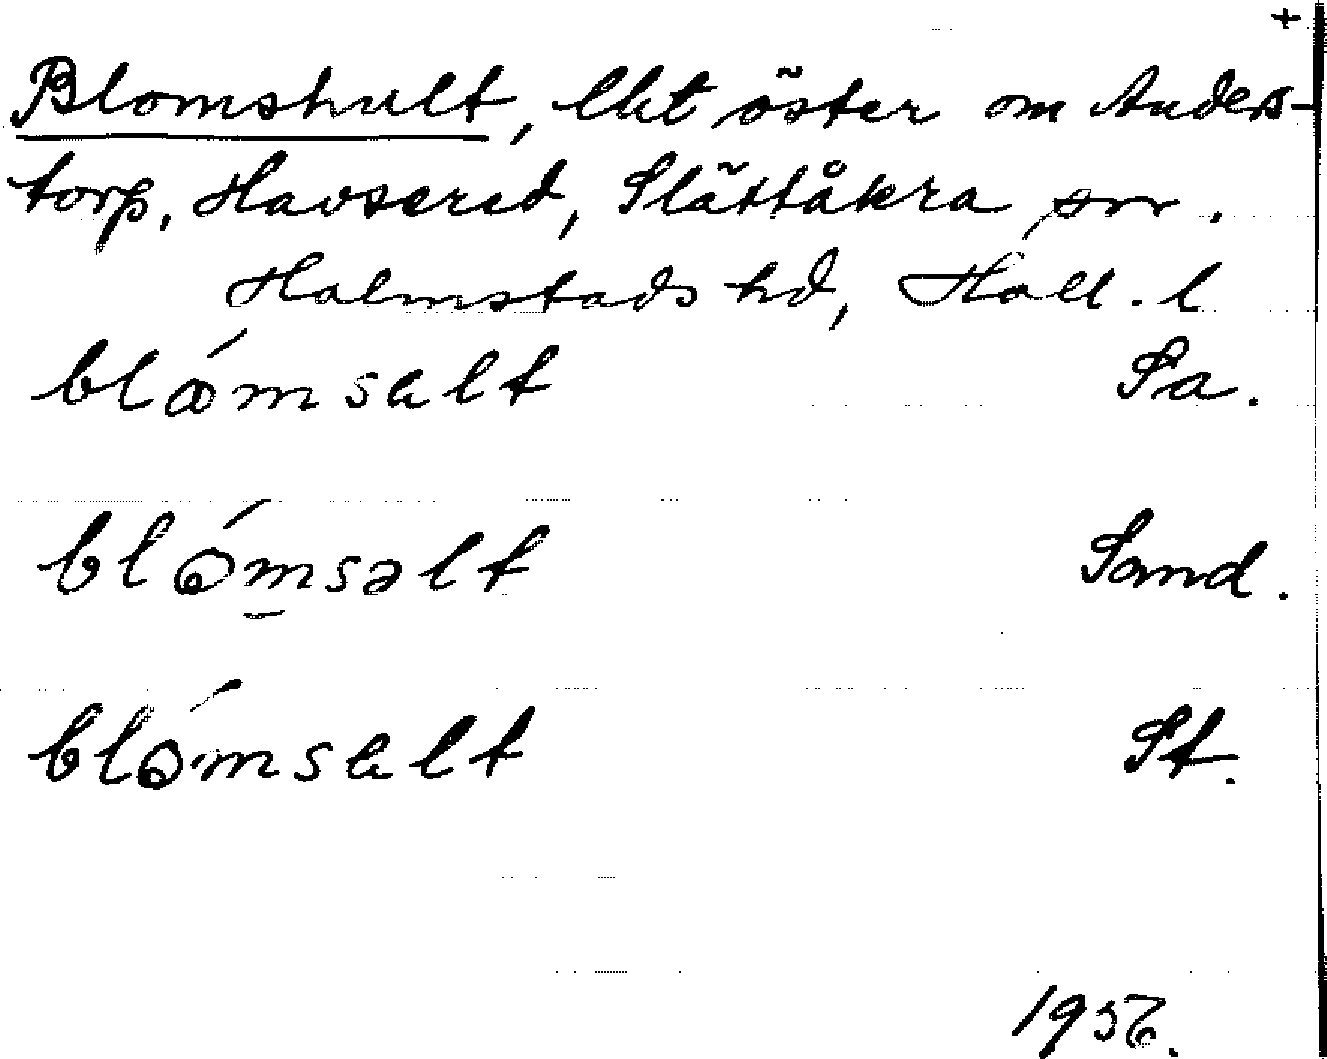 +
Blomshult, lht öster om Anders-
torp, Havsered, Slättåkra sn.
Halmstads hd, Hall. l
blómsalt Sa.
blómsəlt Sand.
blómsalt St.
1956.